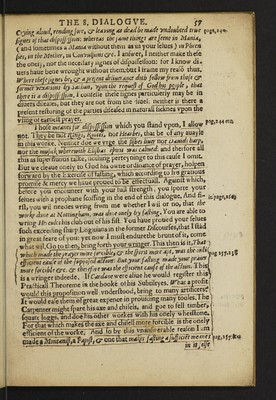 THE 8. DIALOGVE. 57
Crying aloud, rending sore, & leaving as dead be made vndoubted true
signes of thas dispossession: whereas the same things are seene in Mania,
( and sometimes a Mania without them as in your selues ) in Phrensies,
in the Mother, in Convulsions &c. I answer, I neither make these
the only, nor the necessary signes of dispossession: for I know divers
haue bene wrought without them, but I frame my reasō thus.
Where these signes be, & a present deliverance doth follow from those &
former vexations by Sathan, vpon the request of Gods people, that
there is a dispossession, I confesse these signes particularly may be in
divers diseases, but they are not from the same. neither is there a
present restoring of the parties diseased in naturall sicknes vpon the
vsing of earnest prayer.
Those meanes for dispossession which you stand vpon, I allow
not. They be not Rings, Rootes, nor Herbes, that be of any availe
in this worke. Neither doe we vrge the fishes liver nor Davids harp,
nor the musick wherewith Elishas spirit was calmed: and therfore all
this as superfluous talke, nothing pertyning to this cause I omit.
But we cleaue onely to God his owne ordinance of prayer, holpen
forward by the exercise of fasting, which according to his gratious
promise & mercy we haue proued to be effectuall. Against which,
before you encounter with your full strength, you sporte your
selues with a prophane scoffing in the end of this dialogue. And first,
you wil needes wring from me whether I wil or no, that the
worke done at Nottingham, was done onely by fasting. You are able to
wring Hercules his club out of his fist. You haue proued your selues
such exceeding sharp Logicians in the former Discourses, that I stād
in great feare of you: yet now I must endure the brunt of it, come
what wil. Go to then, bring forth your wringer. This then is it, That
which made the prayer more forcible, & the spirit more apt, was the only
efficient cause of the supposed action: But your fasting made your prayer
more forcible &c. & therefore was the efficient cause of the action. This
is a wringer indeede. If Cardane were aliue he would register this
Practicall Theoreme in the booke of his Subtiltyes. What a profit
would this proposition well vnderstood, bring to many artificers?
It would ease them of great expence in prouiding many tooles. The
Carpenter might spare his axe and chisels, and goe to fell timber,
square logges, and doe his other workes with his onely whetstone.
For that which makes the axe and chisels more forcible is the onely
efficient of the worke. And so by this vnanswerable reason I am
made a
in it, else